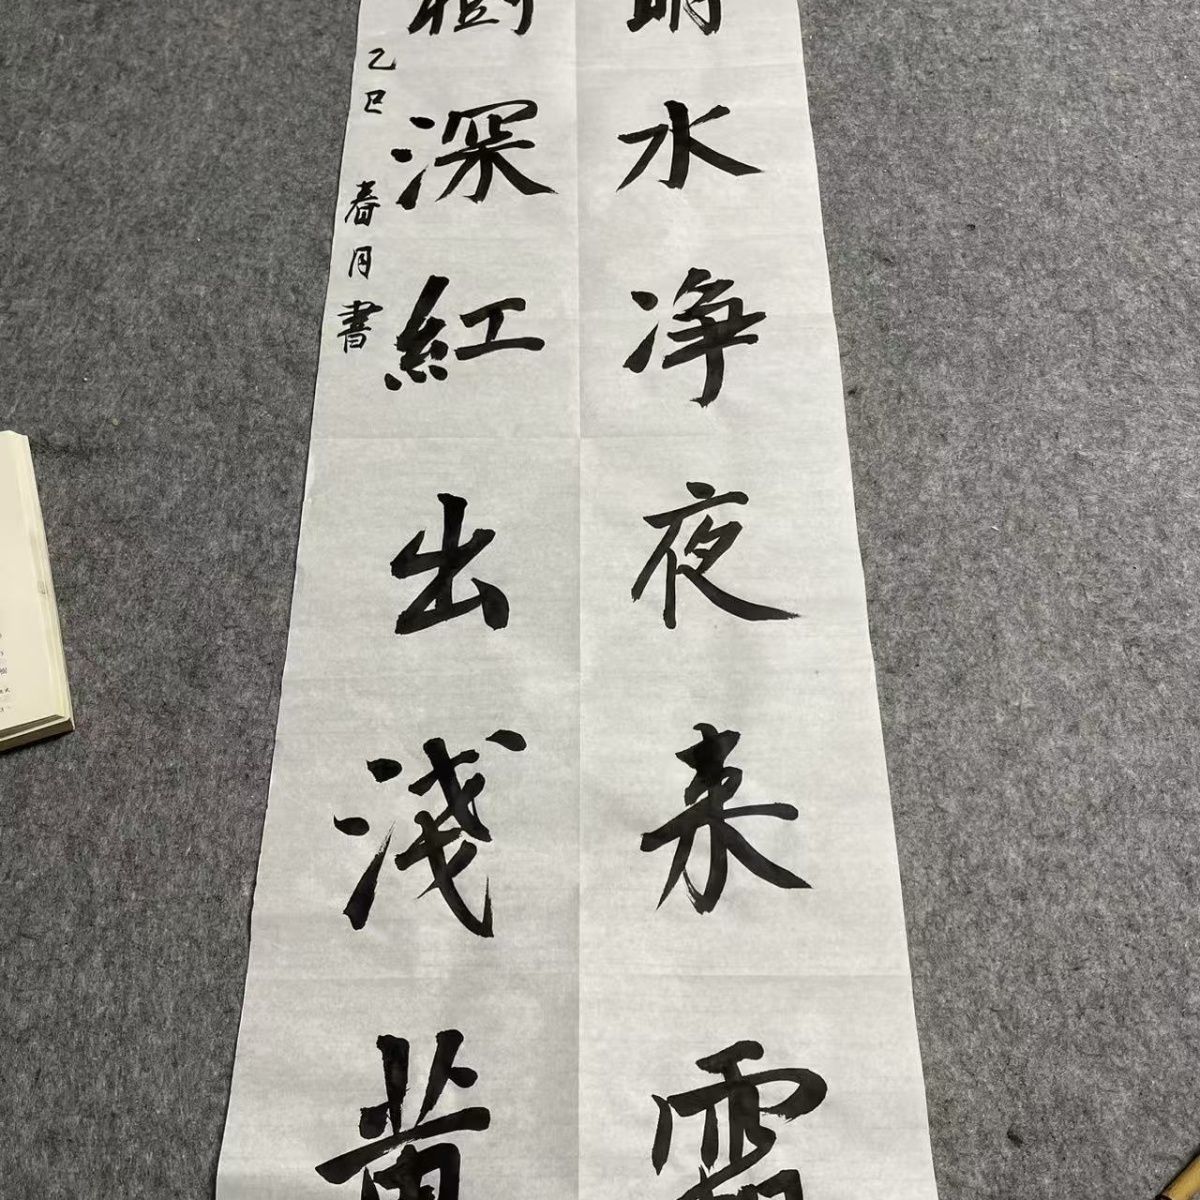 明水净夜来霜
樹深紅出淺黄
乙巳春月書